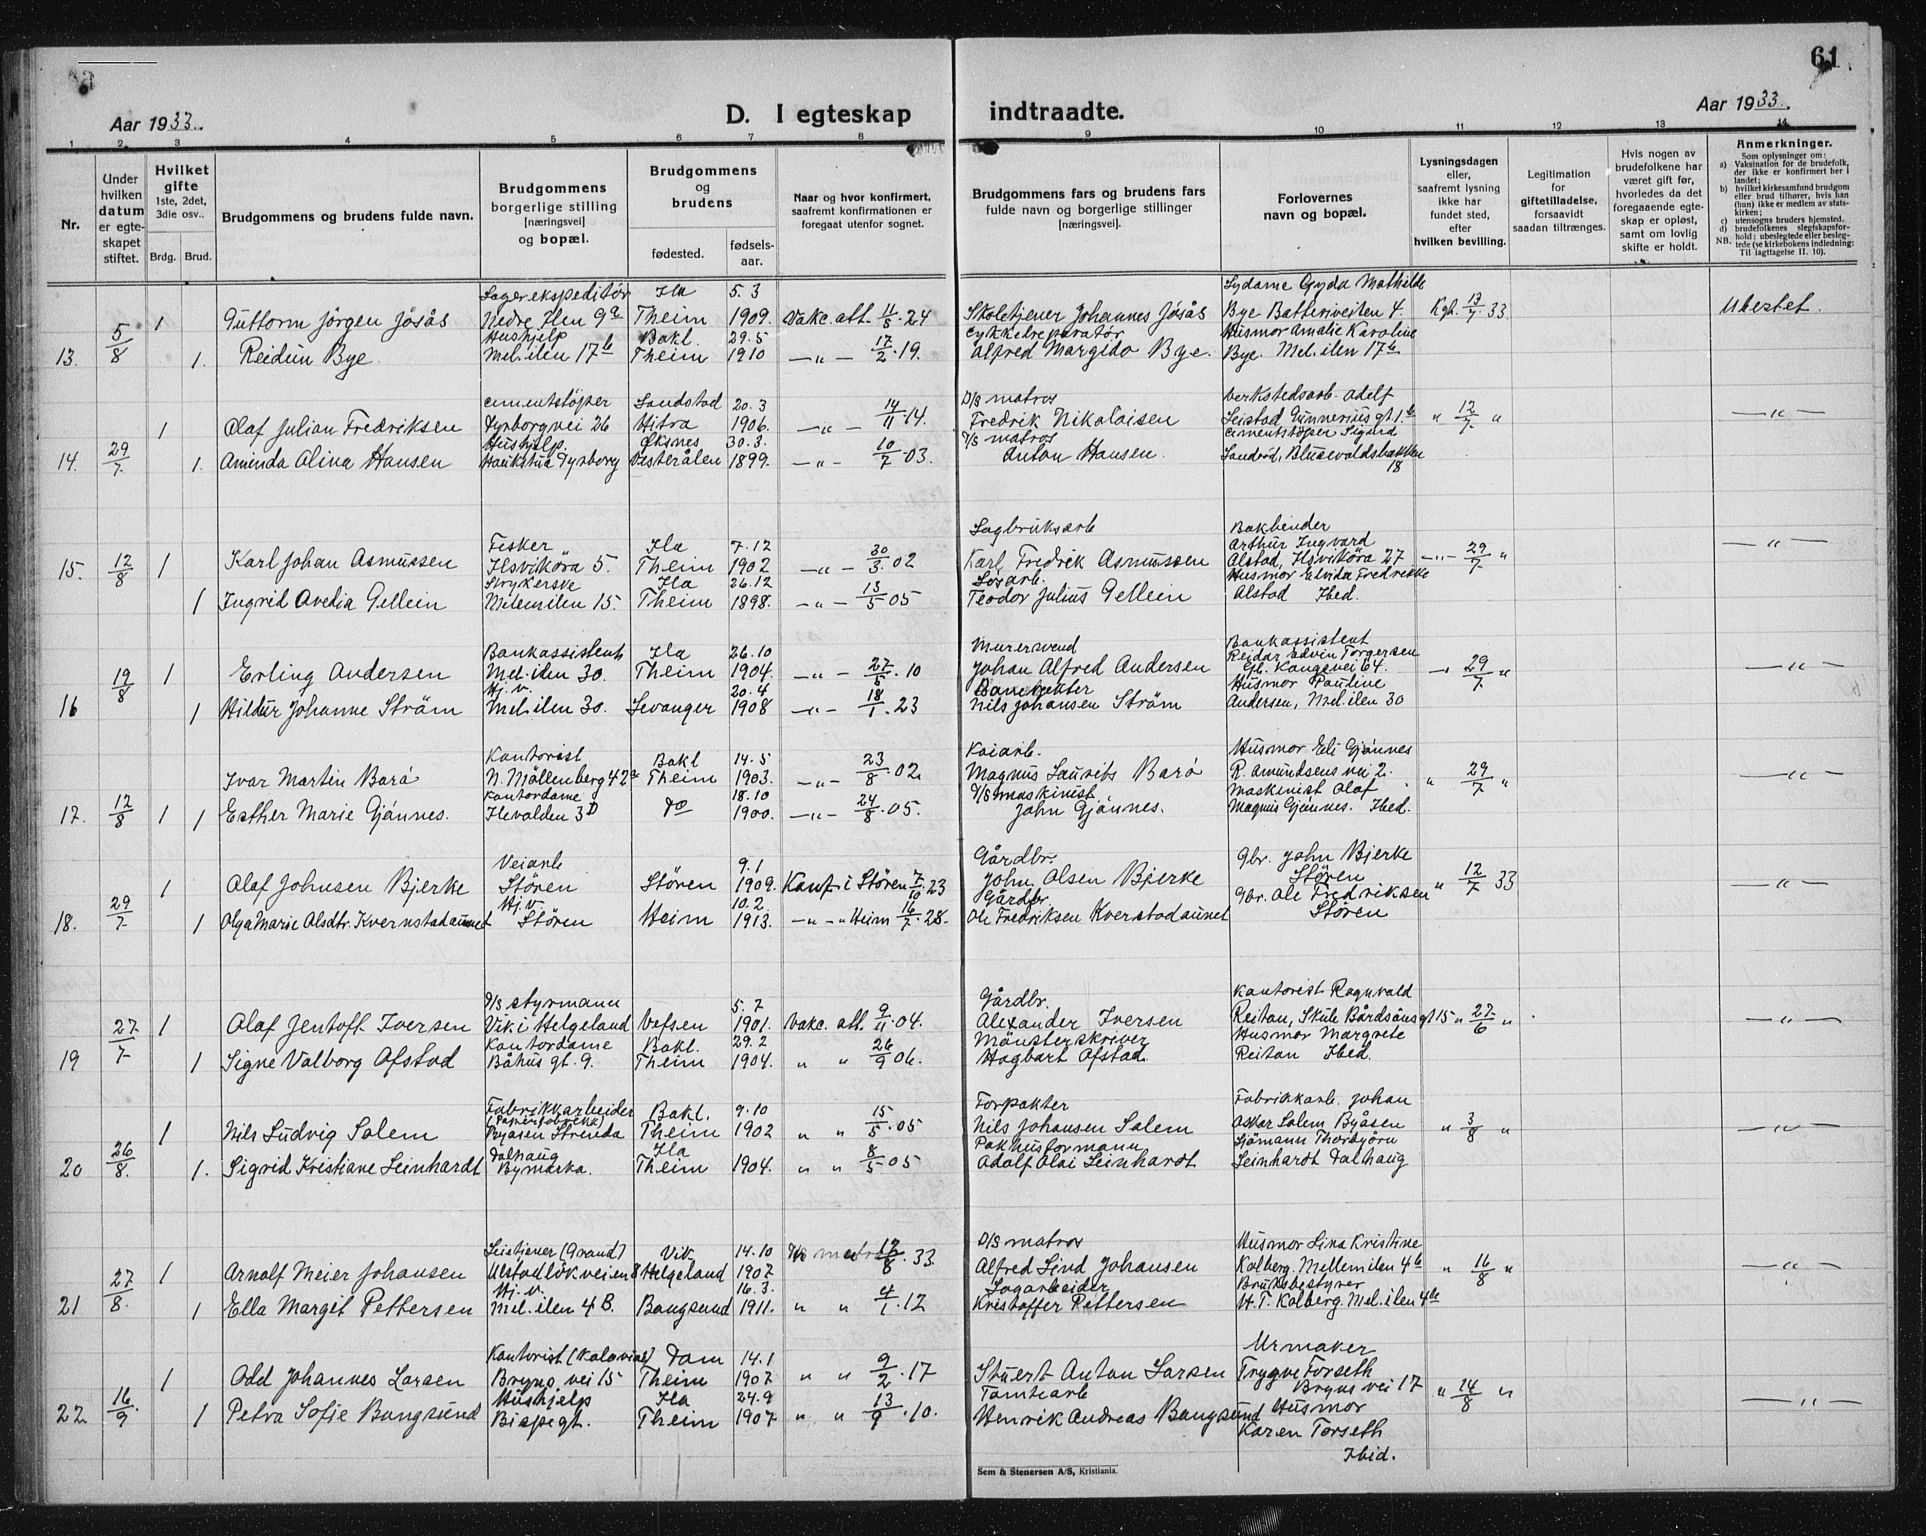 61
Aar 1933.
D. I egteskap indtraadte.
Aar 1933.
1 2 3 4 5 6 7 8 9 10 11 12 13 14
Nr.
Under hvilken datum er egteskapet stiftet.
Hvilket gifte 1ste, 2det, 3die osv..
Brdg. Brud.
Brudgommens og brudens fulde navn.
Brudgommens borgerlige stilling [næringsvei] og bopæl.
Brudgommens og brudens
fødested. fødselsaar.
Naar og hvor konfirmert, saafremt konfirmationen er foregaat utenfor sognet.
Brudgommens fars og brudens fars fulde navn og borgerlige stillinger [næringsvei].
Forlovernes navn og bopæl.
Lysningsdagen eller, saafremt lysning ikke har fundet sted, efter hvilken bevilling.
Legitimation for giftetilladelse, forsaavidt saadan tiltrænges.
Hvis nogen av brudefolkene har været gift før, hvorledes da det foregaaende egteskap er opløst, samt om lovlig skifte er holdt.
Anmerkninger.
Som oplysninger om:
a) Vaksination for de brudefolk, der ikke er konfirmert her i landet;
b) hvilket kirkesamfund brudgom eller brud tilhører, hvis han (hun) ikke er medlem av statskirken;
c) utensogns bruders hjemsted.
d) brudefolkenes slegtskapsforhold: ubeslegtede eller beslegtede (se kirkebokens indledning:
NB. Til iagttagelse II. 10).
13. 5/8 1 Guttorm Jörgen Jösås Lagerekspeditör Nedre Ilen 9a Ila Theim 5.3 1909. Vakc. att. 11/5.24 Skoletjener Johannes Jösås Sydame Gyda Mathilde Bye Batteriveiten 4. Kgh. 13/7 33 Ubeslet.
1. Reidun Bye Hushjelp Mel.ilen 17b Bakl. Theim 29.5 1910 —"— 17/2.19. Cykkelreparatör Alfred Margido Bye. Husmor Amalie Karoline Bye. Mel.ilen 17b
14. 29/7 1 Olaf Julian Fredriksen cementstöper Tyborgvei 26 Sandstad Hitra 20.3 1906. —"— 14/11.14. D/S matros Fredrik Nikolaisen Verkstedsarb. Adolf Leistad Gunnerius gt. 1b " 12/7 " —"—
1. Aminda Alina Hansen Hushjelp Haukstua Tyrborg Öksnes Vesterålen 30.3. 1899. —"— 10/7.03. D/S matros Anton Hansen. cementstöper Sigurd Sandröd, Blusevoldsbakken 18
15. 12/8 1 Karl Johan Asmussen Fisker Ilsviköra 5. Ila Theim 7.12 1902 —"— 30/3.02 Sagbruksarb Karl Fredrik Asmussen Bokbinder Arthur Ingvard Alstad, Ilsviköra 27 —"— 29/7 " —"—
1 Ingrid Avedia Gellein Strykerske Mellemilen 15. Ila Theim 26.12 1898. —"— 13/5 05 Losarb. Teodor Julius Gellein Husmor Elvida Fredrikke Alstad Ibid.
16 19/8 1 Erling Andersen Bankassistent Mel.ilen 30. Ila Theim 26.10 1904. —"— 27/5.10 Murersvend Johan Alfred Andersen Bankassistent Reidar Edvin Torgersen Gl. Kongevei 64. " 29/7 " —"—
1 Hildur Johanne Ström Hj.v. Mel.ilen 30. Levanger 20.4 1908 —"— 18/1.23 Banevokter Nils Johansen Ström Husmor Pauline Andersen, Mel.ilen 30
17. 12/8 1 Ivar Martin Barö Kontorist N. Möllenberg 42a Bakl Theim 14.5 1903. —"— 23/8.02. Kaiarb. Magnus Laurits Barö Husmor Eli Gjönnes R. Amundsens vei 2. " 29/7 " —"—
1 Esther Marie Gjönnes. Kontordame Ilevolden 3D do 18.10 1900. —"— 24/8.05. D/S maskinist John Gjönnes. Maskinist Olaf Magnus Gjönnes. Ibid.
18. 29/7 1 Olaf Johnsen Bjerke Veiarb Stören Stören 9.1 1909. Konf. i Stören 7/10 23 Gårdbr. John Olsen Bjerke Gbr. John Bjerke Stören " 12/7 33 —"—
1 Olga Marie Olsdtr. Kvernstadaunet Hj.v. Stören Heim 10.2. 1913. —"— " Heim 16/7.28. Gårdbr. Ole Fredriksen Kverstadaunet Gbr. Ole Fredriksen Stören
19 27/7 1 Olaf Jentoff Iversen D/S styrmann Vik i Helgeland Vefsen 5.7 1901. Vakc. att. 9/11.04. Gårdbr. Alexander Iversen Kontorist Ragnvald Reitan, Skule Bårdsöns gt 15 " 27/6 " —"—
1 Signe Valborg Ofstad Kontordame Båhus gt. 9. Bakl. Theim 29.2 1904. " " 26/9 06. Mönsterskriver Hagbart Ofstad. Husmor Margrete Reitan Ibid.
20 26/8. 1 Nils Ludvig Solem Fabrikkarbeider (Papirfabrikk) Byåsen Strinda Bakl. Theim 9.10 1902 " " 15/5.05 Forpakter Nils Johansen Solem Fabrikkarb. Johan Oskar Solem Byåsen " 3/8 " —"—
1. Sigrid Kristiane Leinhardt Dalhaug Bymarka. Ila Theim 1904. " " 8/5 05 Pakhusformann Adolf Olai Leinhardt Sjömann Thorbjörn Leinhardt Dalhaug
21 27/8. 1 Arnolf Meier Johansen Leistjener (Grand) Ulstadlökveien 8 Vik Helgeland 14.10 1907 12/8.33 D/S matros Alfred Lind Johansen Husmor Lina Kristine Kolberg. Mellemilen 4b " 16/8 " —"—
1 Ella Margit Pettersen Hj.v. Mel.ilen 4B. Bangsund 16.3. 1911. " " 4/1.12 Sagarbeider Kristoffer Pettersen Bruksbestyrer H.T. Kolberg. Mel.ilen 4b
22 16/9. 1 Odd Johannes Larsen Kontorist (kolonial) Bryns vei 15 Dom Theim 14.1 1907 " " 9/2.17 Stuert Anton Larsen Urmaker Trygve Forseth Bryns vei 17 " 14/8 " —"—
1 Petra Sofie Bangsund Hushjelp Bispegt. Ila Theim 24.9 1907. " " 13/9.10. Tomtearb Henrik Andreas Bangsund Husmor Karen Forseth Ibid.
Sem & Stenersen A/S, Kristiania.